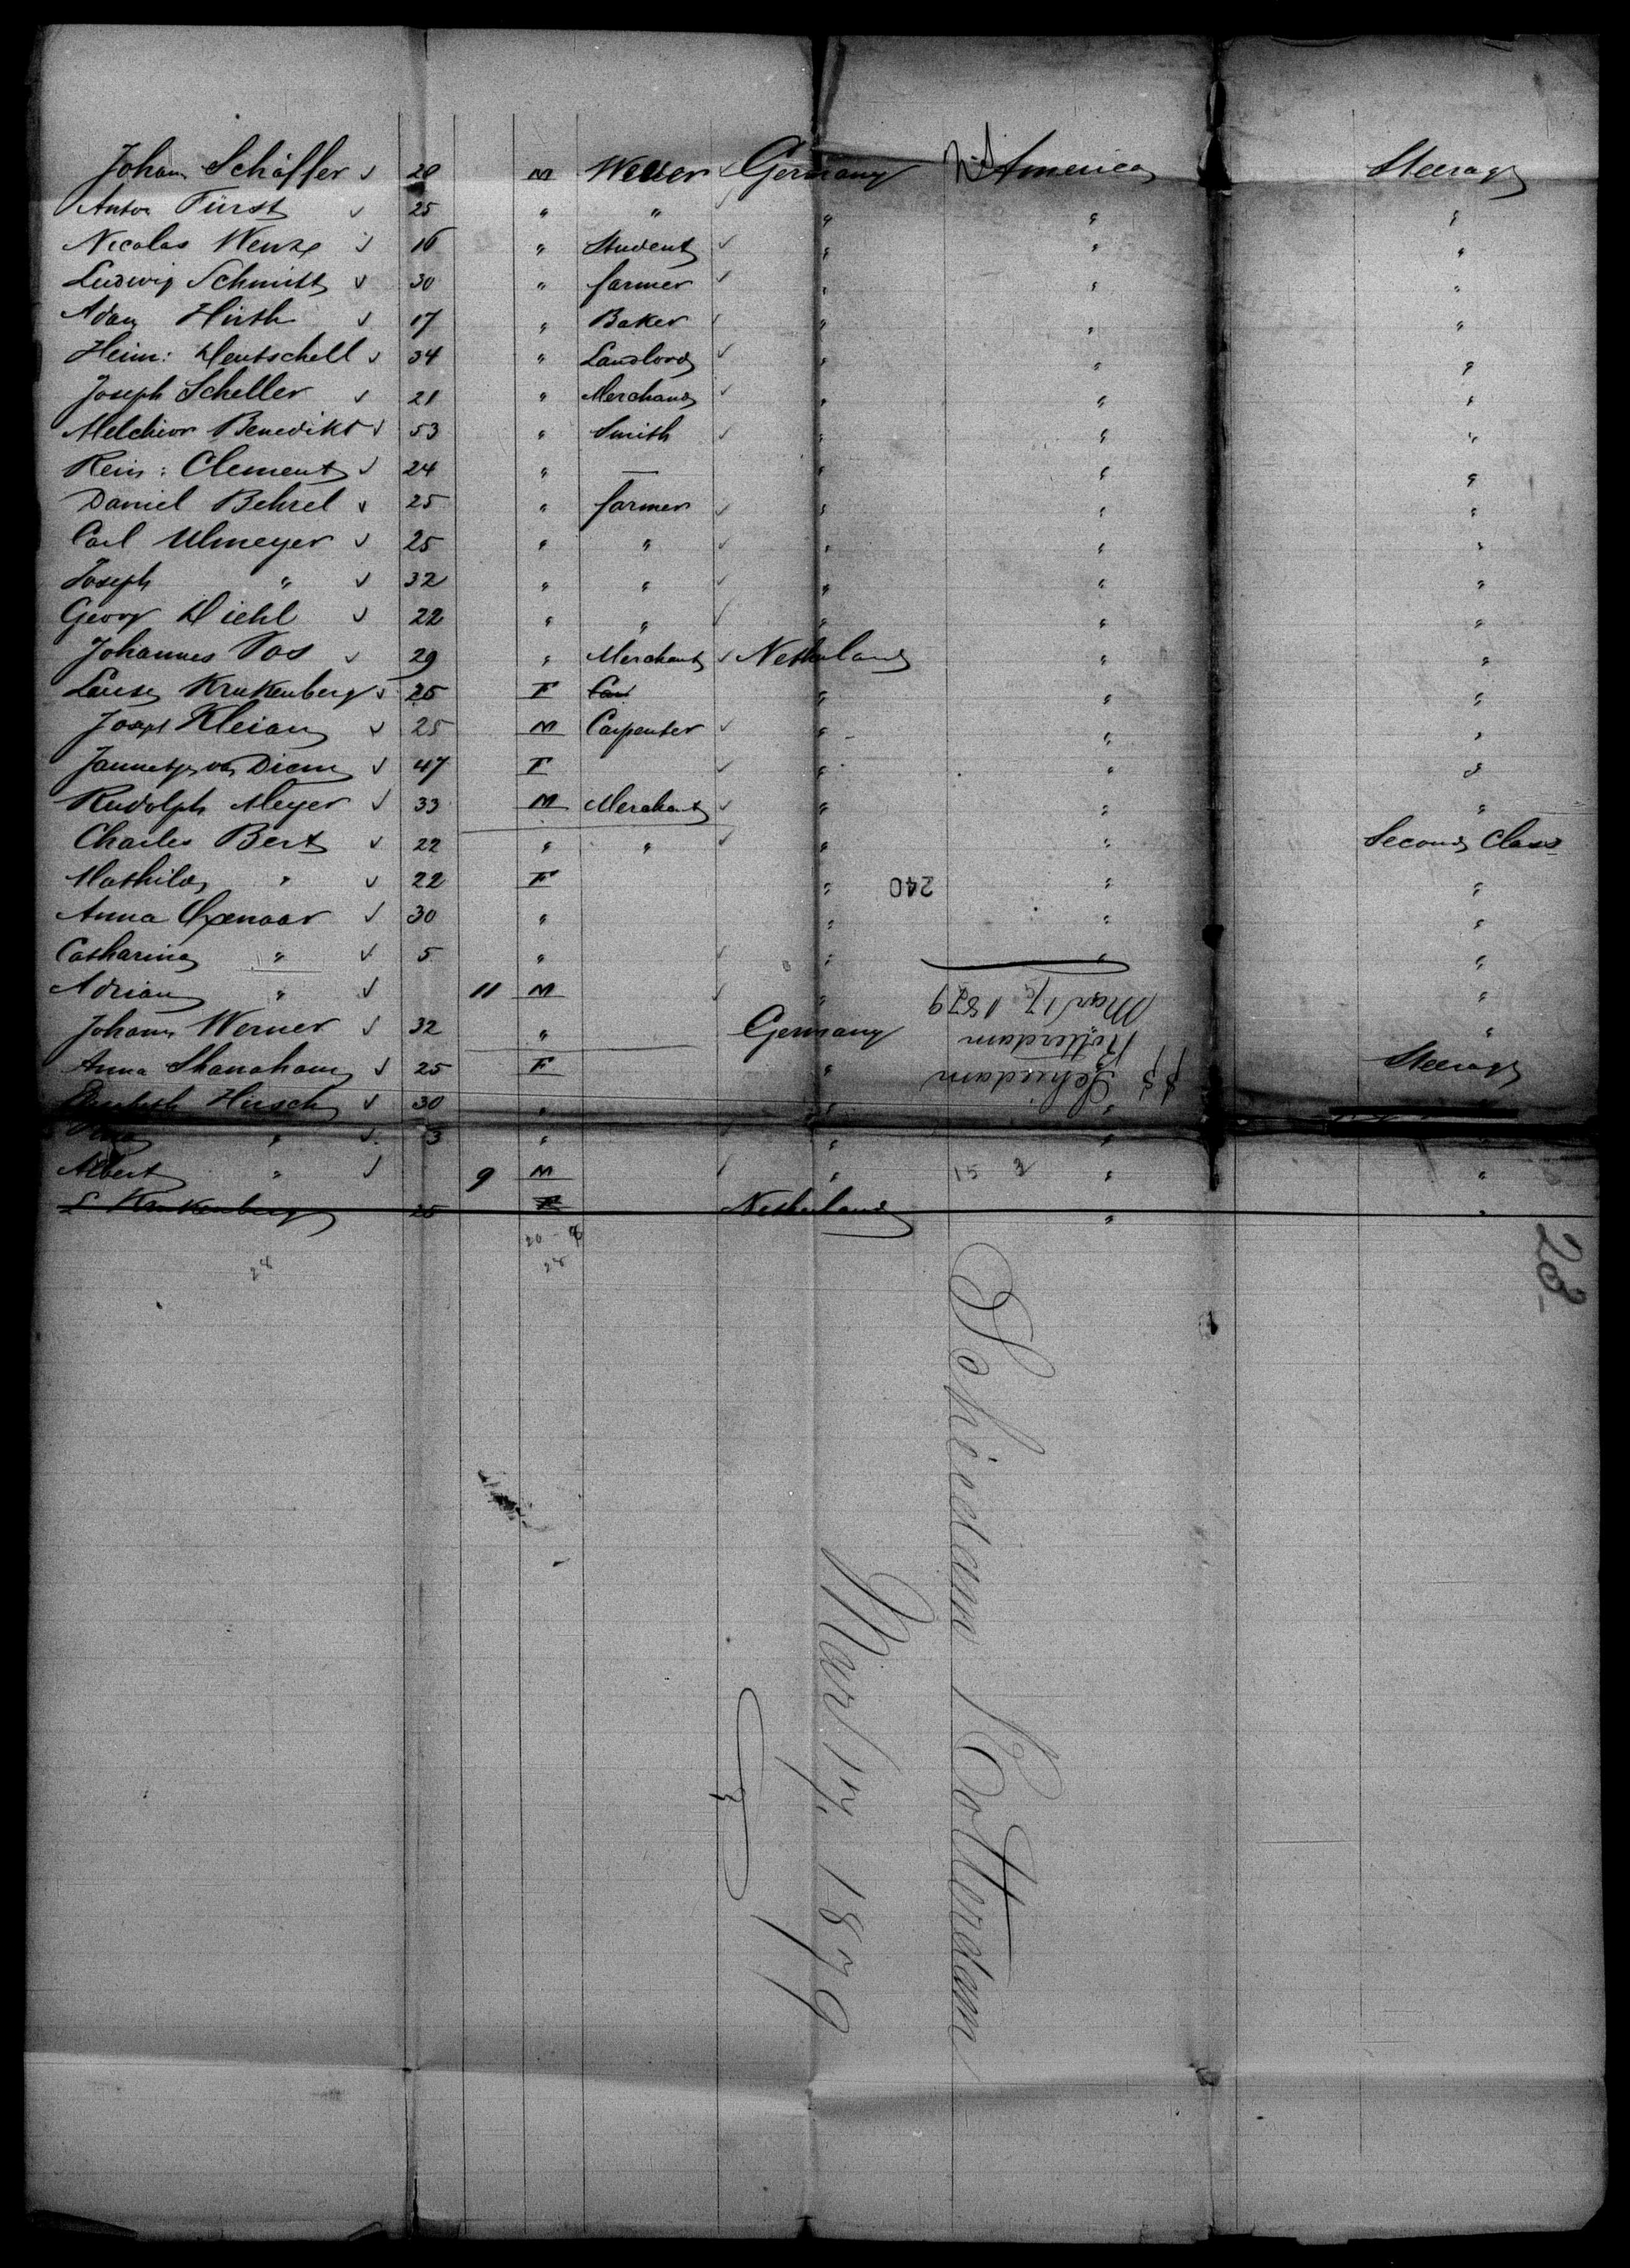 Johann Schäffer √ 20 M Weber √ Germany N America Steerage
Anton Fürst √ 25 " " √ " " "
Nicolas Wenze √ 16 " Student √ " " "
Ludwig Schmitt √ 30 " farmer √ " " "
Adam Hirth √ 17 " Baker √ " " "
Heinr: Hentschell √ 34 " Landlord √ " " "
Joseph Scheller √ 21 " Merchand √ " " "
Melchior Benedikt √ 53 " Smith √ " " "
Rein: Clement √ 24 " — " " "
Daniel Behrel √ 25 " farmer √ " " "
Carl Ulmeyer √ 25 " " √ " " "
Joseph " √ 32 " " √ " " "
Georg Diehl √ 22 " " √ " " "
Johannes Vos √ 29 " Merchant √ Netherland " "
Louise Krukenberg √ 25 F Car " " "
Joseph Kleian √ 25 M Carpenter √ " " "
Jannetje van Diem √ 47 F √ " " "
Rudolph Meyer √ 33 M Merchant √ " " "
Charles Bert √ 22 " " √ " " Second Class
Mathilde " √ 22 F " 240 " "
Anna Oxenaar √ 30 " " " "
Catharina " √ 5 " √ " " "
Adrian " √ 11 M √ " "
Mar 17, 1879
Johann Werner √ 32 " Germany " "
Rotterdam
Anna Shanaham √ 25 F " Steerage
SS Schiedam
Hirsch √ 30 " " "
" √ 3 " √ " " "
Albert " √ 9 M √ " 15 2 " "
L Krukenberg 25 F Netherland " "
20 - 8
28
28
28
Schiedam Rotterdam
Mar 17, 1879